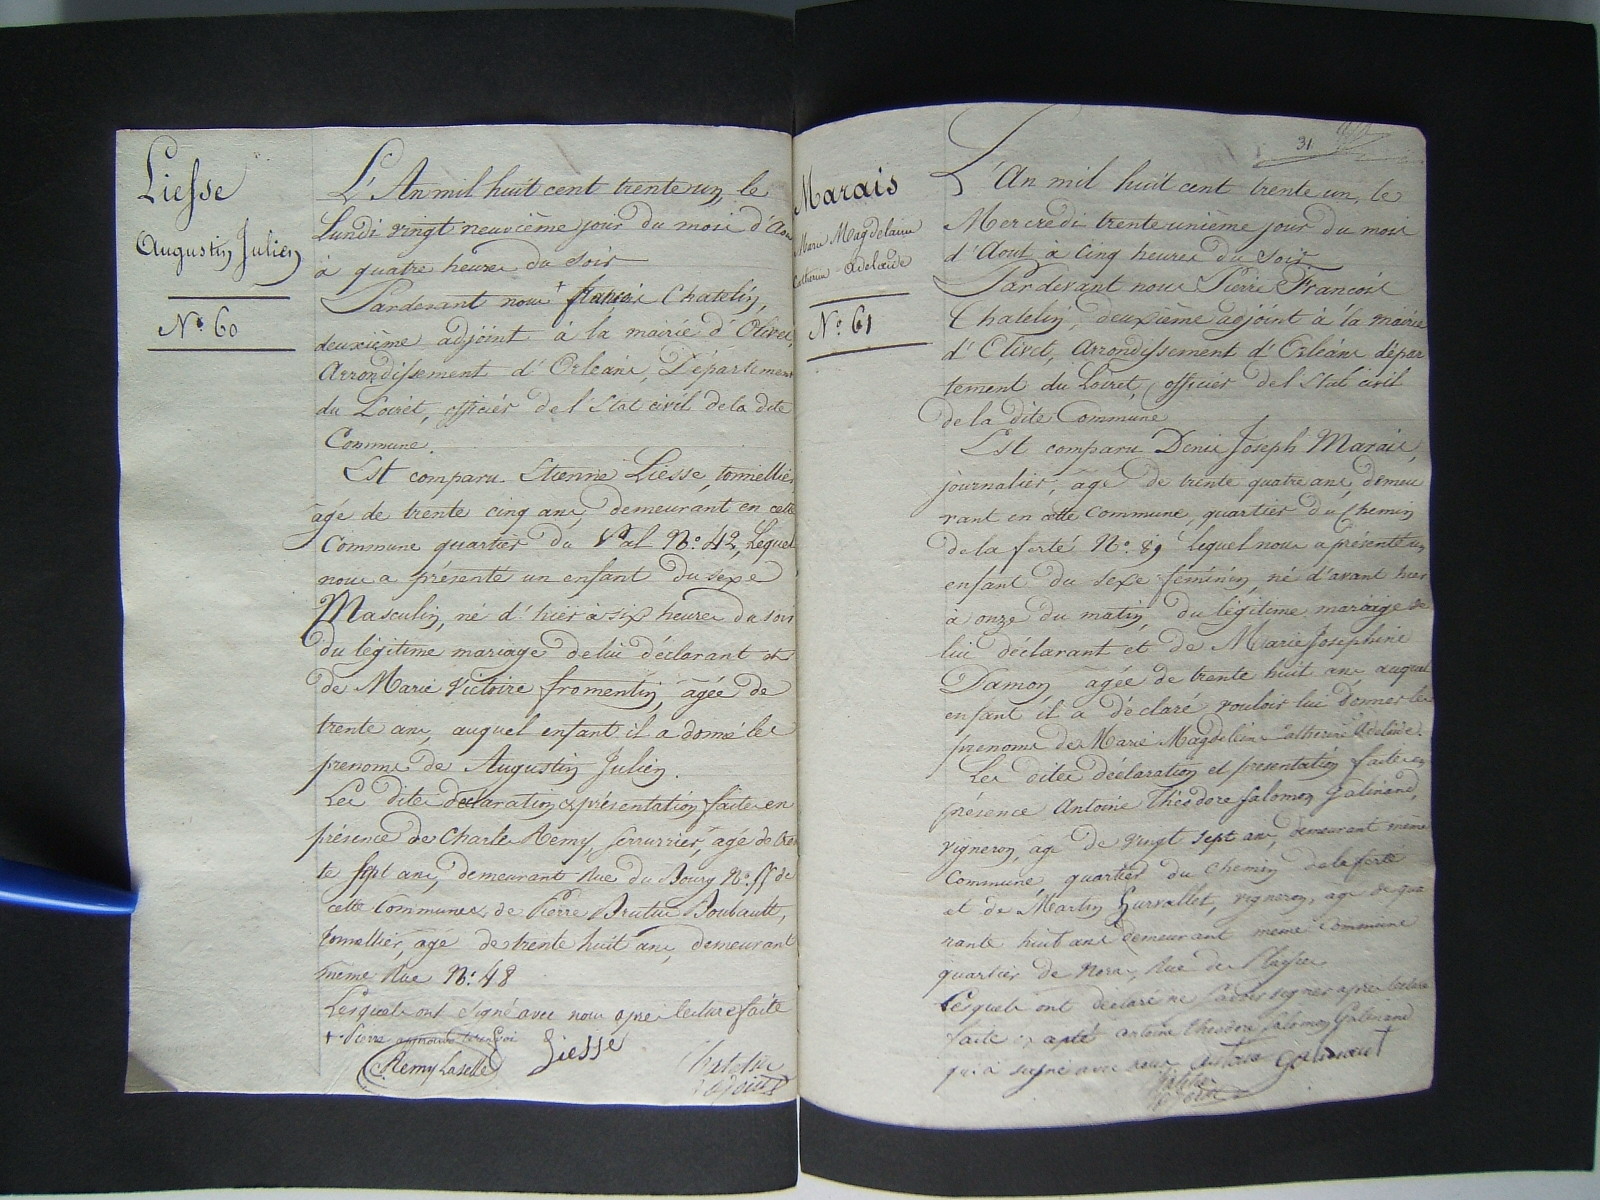 Liesse
Augustin Julien
No. 60
L'An mil huit cent trente un, le
Lundi vingt neuvième jour du mois d'Aou
à quatre heures du soir
Pardevant nous + françois Chatelin,
deuxième adjoint à la mairie d'Olivet,
Arrondissement d'Orléans, Département
du Loiret, officier de l'Etat civil de la dite
Commune.
Est comparu Etienne Liesse, tonnellier
âgé de trente cinq ans, demeurant en cette
Commune quartier du Val No. 42, Lequel
nous a présenté un enfant du sexe
Masculin, né d'hier à six heures du soir
du légitime mariage de lui déclarant et
de Marie Victoire fromentin, âgée de
trente ans, auquel enfant il a donné les
prenoms de Augustin Julien.
Les dites déclaration & présentation faites en
présence de Charles Rémy, serrurier, agé de tren
te sept ans, demeurant Rue du Bourg No. 55 de
cette Commune & de Pierre Brutus Boubault,
tonnellier, agé de trente huit ans, demeurant
même Rue No. 48
Lesquels ont signé avec nous apres lecture faite
+ Pierre approuvé le renvoi
Remy Laselle Liesse Chatelin
adjoint
31
Marais
Marie Magdelaine
Catherine Adelaide
No. 61
L'An mil huit cent trente un, le
Mercredi trente unième jour du mois
d'Aout à Cinq heures du Soir
Pardevant nous Pierre François
Chatelin, deuxième adjoint à la mairie
d'Olivet, Arrondissement d'Orléans dépar
tement du Loiret, officier de l'Etat civil
de la dite Commune
Est comparu Denis Joseph Marais,
journalier, âgé de trente quatre ans, demeu
rant en cette Commune, quartier du Chemin
de la ferté No. 89 Lequel nous a présenté un
enfant du sexe féminin, né d'avant hier
à onze du matin, du légitime mariage de
lui déclarant et de Marie Josephine
Damon, agée de trente huit ans, auquel
enfant il a déclaré vouloir lui donner les
prenoms de Marie Magdeleine Catherine Adelaide.
Les dites déclaration et présentation faites en
présence Antoine Théodore Salomon Galinand,
vigneron, âgé de vingt sept ans, demeurant même
Commune, quartier du Chemin de la ferté
et de Martin vigneron, agé de qua
rante huit ans demeurant même Commune
quartier de Rue de
Lesquels ont déclaré ne savoir signer apres lecture
faite excepté Antoine Théodore Salomon Galinand
qui a signé avec nous Antoine Galinand
Chatelin
adjoint